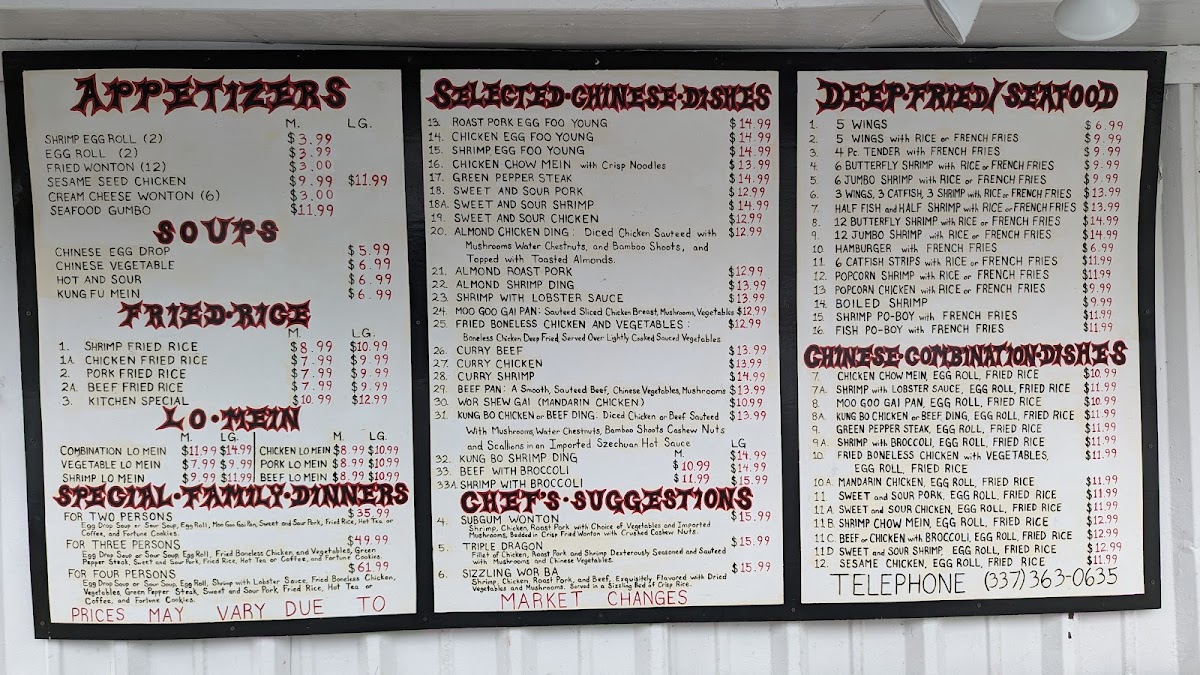 APPETIZERS
M. LG.
SHRIMP EGG ROLL (2) $3.99
EGG ROLL (2) $3.99
FRIED WONTON (12) $3.00
SESAME SEED CHICKEN $9.99 $11.99
CREAM CHEESE WONTON (6) $3.00
SEAFOOD GUMBO $11.99
SOUPS
CHINESE EGG DROP $5.99
CHINESE VEGETABLE $6.99
HOT AND SOUR $6.99
KUNG FU MEIN $6.99
FRIED·RICE
M. LG.
1. SHRIMP FRIED RICE $8.99 $10.99
1A. CHICKEN FRIED RICE $7.99 $9.99
2. PORK FRIED RICE $7.99 $9.99
2A. BEEF FRIED RICE $7.99 $9.99
3. KITCHEN SPECIAL $10.99 $12.99
LO·MEIN
M. LG. M. LG.
COMBINATION LO MEIN $11.99 $14.99 CHICKEN LO MEIN $8.99 $10.99
VEGETABLE LO MEIN $7.99 $9.99 PORK LO MEIN $8.99 $10.99
SHRIMP LO MEIN $9.99 $11.99 BEEF LO MEIN $8.99 $10.99
SPECIAL·FAMILY·DINNERS
FOR TWO PERSONS $35.99
Egg Drop Soup or Sour Soup, Egg Roll, Moo Goo Gai Pan, Sweet and Sour Pork, Fried Rice, Hot Tea or
Coffee, and Fortune Cookies.
FOR THREE PERSONS $49.99
Egg Drop Soup or Sour Soup, Egg Roll, Fried Boneless Chicken and Vegetables, Green
Pepper Steak, Sweet and Sour Pork, Fried Rice, Hot Tea or Coffee, and Fortune Cookies.
FOR FOUR PERSONS $61.99
Egg Drop Soup or Sour Soup, Egg Roll, Shrimp with Lobster Sauce, Fried Boneless Chicken,
Vegetables, Green Pepper Steak, Sweet and Sour Pork, Fried Rice, Hot Tea or
Coffee, and Fortune Cookies.
PRICES MAY VARY DUE TO
SELECTED·CHINESE·DISHES
13. ROAST PORK EGG FOO YOUNG $14.99
14. CHICKEN EGG FOO YOUNG $14.99
15. SHRIMP EGG FOO YOUNG $14.99
16. CHICKEN CHOW MEIN with Crisp Noodles $13.99
17. GREEN PEPPER STEAK $14.99
18. SWEET AND SOUR PORK $12.99
18A. SWEET AND SOUR SHRIMP $14.99
19. SWEET AND SOUR CHICKEN $12.99
20. ALMOND CHICKEN DING: Diced Chicken Sauteed with $12.99
Mushrooms Water Chestnuts, and Bamboo Shoots, and
Topped with Toasted Almonds.
21. ALMOND ROAST PORK $12.99
22. ALMOND SHRIMP DING $13.99
23. SHRIMP WITH LOBSTER SAUCE $13.99
24. MOO GOO GAI PAN: Sauteed Sliced Chicken Breast, Mushrooms, Vegetables $12.99
25. FRIED BONELESS CHICKEN AND VEGETABLES: $12.99
Boneless Chicken Deep Fried, Served Over Lightly Cooked Sauced Vegetables
26. CURRY BEEF $13.99
27. CURRY CHICKEN $13.99
28. CURRY SHRIMP $14.99
29. BEEF PAN: A Smooth, Sauteed Beef, Chinese Vegetables, Mushrooms $13.99
30. WOR SHEW GAI (MANDARIN CHICKEN) $10.99
31. KUNG BO CHICKEN or BEEF DING: Diced Chicken or Beef Sauteed $13.99
With Mushrooms, Water Chestnuts, Bamboo Shoots Cashew Nuts
and Scallions in an Imported Szechuan Hot Sauce
M. LG
32. KUNG BO SHRIMP DING $14.99
33. BEEF WITH BROCCOLI $10.99 $14.99
33A. SHRIMP WITH BROCCOLI $11.99 $15.99
CHEF'S·SUGGESTIONS
4. SUBGUM WONTON $15.99
Shrimp, Chicken, Roast Pork with Choice of Vegetables and Imported
Mushrooms, Bedded in Crisp Fried Wonton with Crushed Cashew Nuts.
5. TRIPLE DRAGON $15.99
Fillet of Chicken, Roast Pork and Shrimp Dexterously Seasoned and Sauteed
with Mushrooms and Chinese Vegetables.
6. SIZZLING WOR BA $15.99
Shrimp, Chicken, Roast Pork, and Beef, Exquisitely Flavored with Dried
Vegetables and Mushrooms. Served in a Sizzling Bed of Crisp Rice.
MARKET CHANGES
DEEP·FRIED/SEAFOOD
1. 5 WINGS $6.99
2. 5 WINGS with RICE or FRENCH FRIES $9.99
3. 4 Pc. TENDER with FRENCH FRIES $9.99
4. 6 BUTTERFLY SHRIMP with RICE or FRENCH FRIES $9.99
5. 6 JUMBO SHRIMP with RICE or FRENCH FRIES $9.99
6. 3 WINGS, 3 CATFISH, 3 SHRIMP with RICE or FRENCH FRIES $13.99
7. HALF FISH and HALF SHRIMP with RICE or FRENCH FRIES $13.99
8. 12 BUTTERFLY SHRIMP with RICE or FRENCH FRIES $14.99
9. 12 JUMBO SHRIMP with RICE or FRENCH FRIES $14.99
10. HAMBURGER with FRENCH FRIES $6.99
11. 6 CATFISH STRIPS with RICE or FRENCH FRIES $11.99
12. POPCORN SHRIMP with RICE or FRENCH FRIES $11.99
13. POPCORN CHICKEN with RICE or FRENCH FRIES $9.99
14. BOILED SHRIMP $9.99
15. SHRIMP PO-BOY with FRENCH FRIES $11.99
16. FISH PO-BOY with FRENCH FRIES $11.99
CHINESE·COMBINATION·DISHES
7. CHICKEN CHOW MEIN, EGG ROLL, FRIED RICE $10.99
7A. SHRIMP with LOBSTER SAUCE, EGG ROLL, FRIED RICE $11.99
8. MOO GOO GAI PAN, EGG ROLL, FRIED RICE $10.99
8A. KUNG BO CHICKEN or BEEF DING, EGG ROLL, FRIED RICE $11.99
9. GREEN PEPPER STEAK, EGG ROLL, FRIED RICE $11.99
9A. SHRIMP with BROCCOLI, EGG ROLL, FRIED RICE $11.99
10. FRIED BONELESS CHICKEN with VEGETABLES, $11.99
EGG ROLL, FRIED RICE
10A. MANDARIN CHICKEN, EGG ROLL, FRIED RICE $11.99
11. SWEET and SOUR PORK, EGG ROLL, FRIED RICE $11.99
11A. SWEET and SOUR CHICKEN, EGG ROLL, FRIED RICE $11.99
11B. SHRIMP CHOW MEIN, EGG ROLL, FRIED RICE $12.99
11C. BEEF or CHICKEN with BROCCOLI, EGG ROLL, FRIED RICE $11.99
11D SWEET and SOUR SHRIMP, EGG ROLL, FRIED RICE $12.99
12. SESAME CHICKEN, EGG ROLL, FRIED RICE $11.99
TELEPHONE (337)363-0635